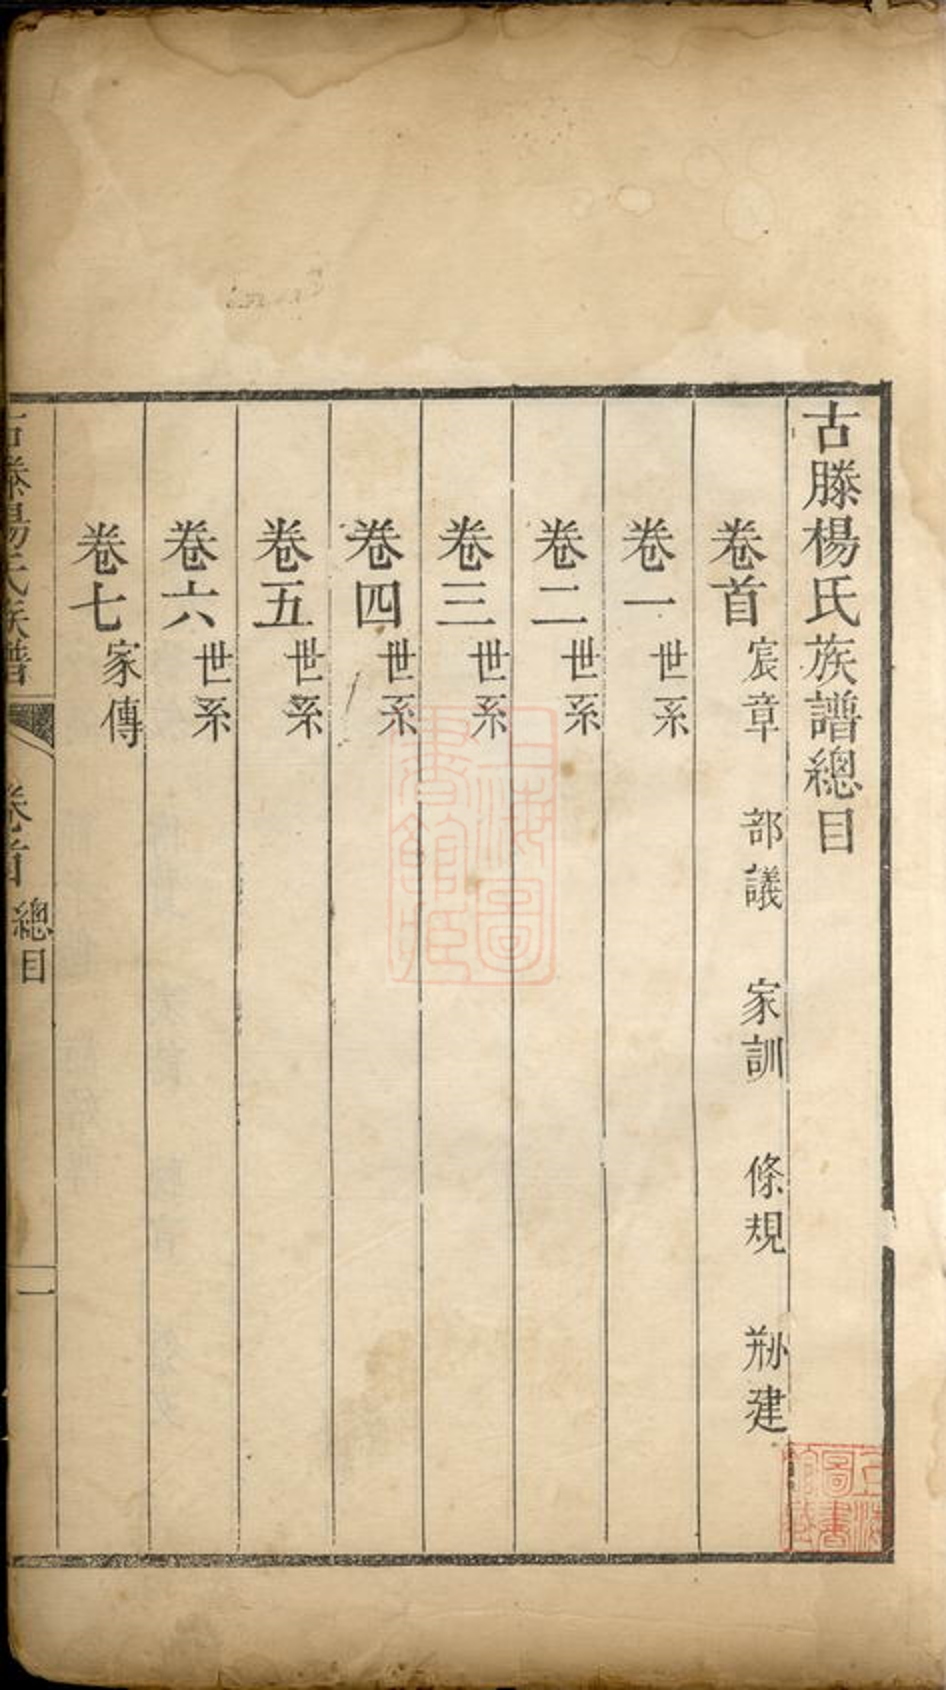 古滕楊氏族譜總目
卷首 宸章 部議 家訓 條規 刱建
卷一 世系
卷二 世系
卷三 世系
卷四 世系
卷五 世系
卷六 世系
卷七 家傳
古滕楊氏族譜 卷首 總目 一
上海圖書館藏
上海圖書館藏